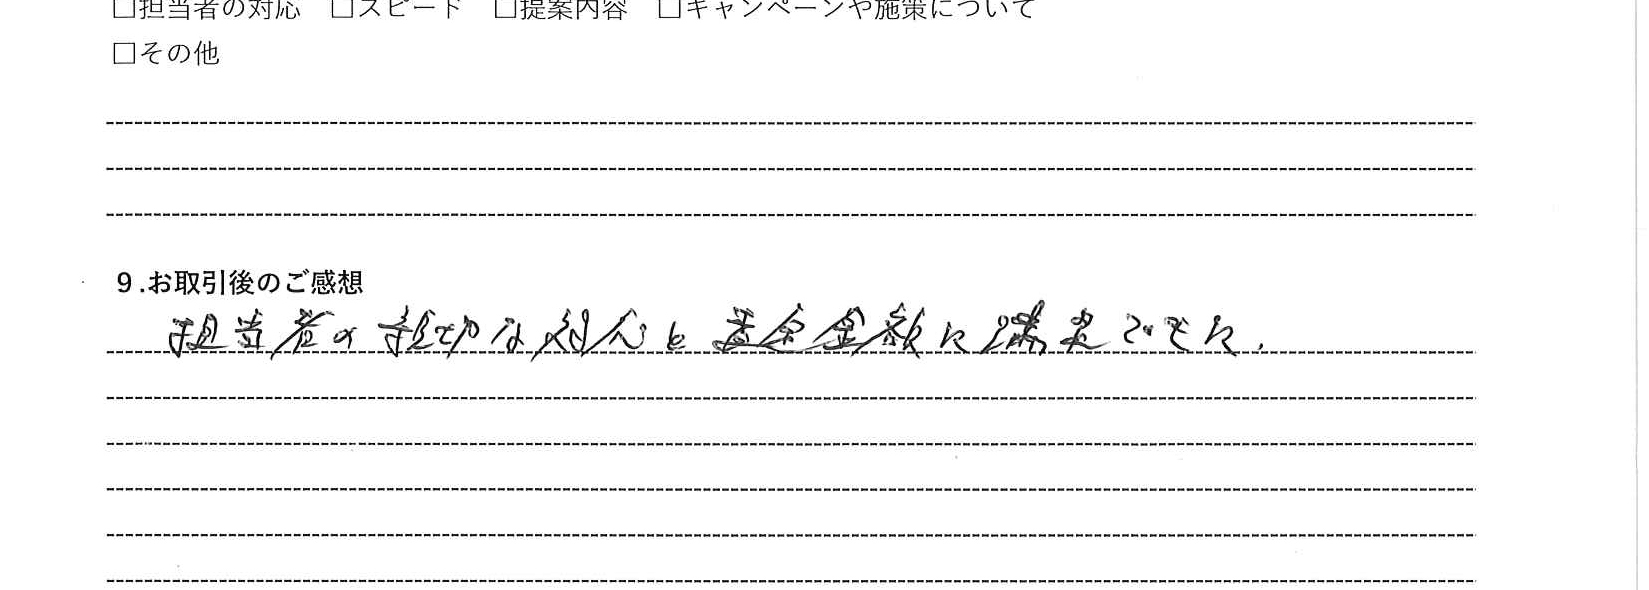 □担当者の対応　□スピード　□提案内容　□キャンペーンや施策について
□その他
9.お取引後のご感想
担当者の親切な対応と査定金額に満足できた.